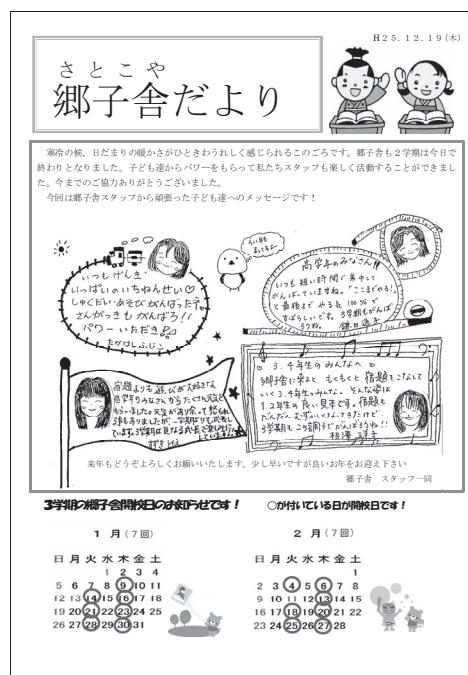 H25.12.19(木)
さとこや
郷子舎だより
寒冷の候、日だまりの暖かさがひときわうれしく感じられるこのごろです。郷子舎も2学期は今日で
終わりとなりました。子ども達からパワーをもらって私たちスタッフも楽しく活動することができまし
た。今までのご協力ありがとうございました。
今回は郷子舎スタッフから頑張った子ども達へのメッセージです！
いつもげんき
いっぱいのいちねんせい♡
しゅくだい・あそびがんばった子
さんがっきもがんばろ!!
パワーいただき!
たかはしふじこ
高学年のみなさん!!
いつも短い時間で集中して
がんばっていますね。「ここまでやる!」
と最後までやる気100%で
すばらしいです。3学期もがんば
ろうね。
3.4年生のみんなへ
郷子舎に来ると、もくもくと宿題をこなして
いく3.4年生のみんな。そんな姿は
1.2年生の良い見本です。宿題も
だんだんむずかしくなってきたけど、
3学期もこの調子でがんばろうね!!
宿題よりも遊びが大好きな
来年もどうぞよろしくお願いいたします。少し早いですが良いお年をお迎え下さい
郷子舎 スタッフ一同
3学期の郷子舎開校日のお知らせです！ ○が付いている日が開校日です！
1月(7回)
日月火水木金土
1 2 3 4
5 6 7 8 9 10 11
12 13 14 15 16 17 18
19 20 21 22 23 24 25
26 27 28 29 30 31
2月(7回)
日月火水木金土
1
2 3 4 5 6 7 8
9 10 11 12 13 14 15
16 17 18 19 20 21 22
23 24 25 26 27 28